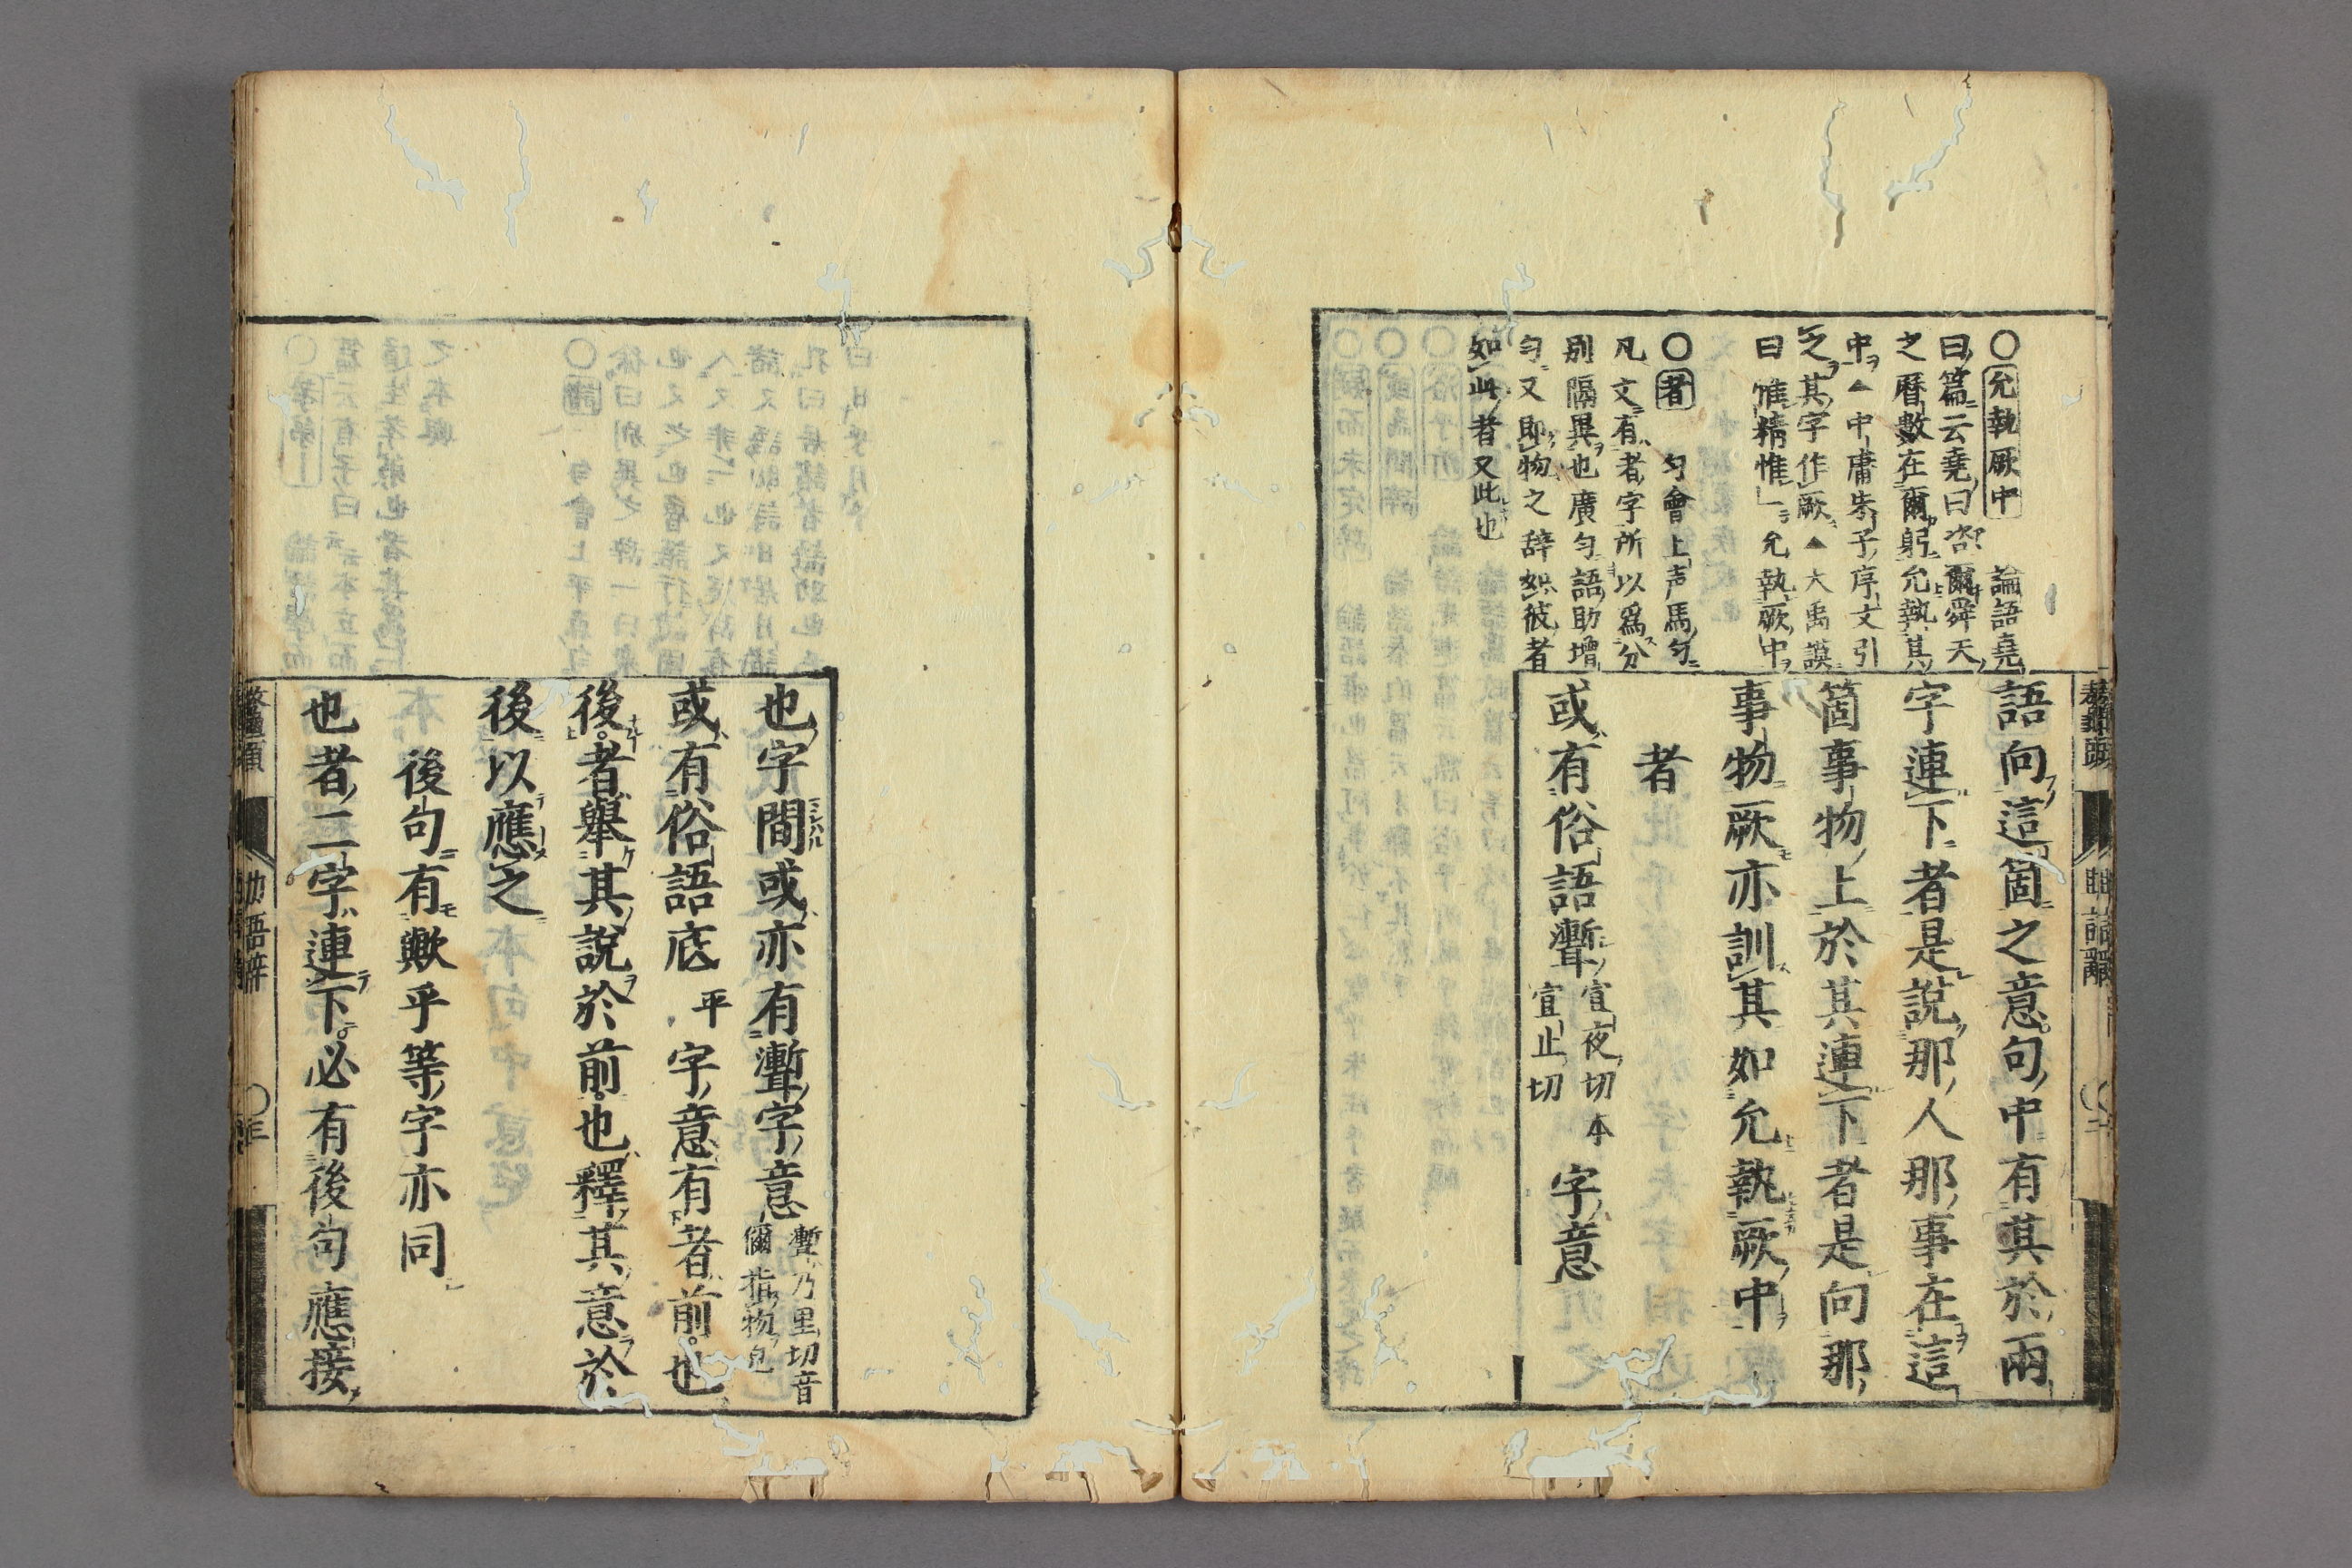 ○允執厥中 論語堯
曰篇云堯曰咨爾舜天
之曆數在爾躬允執其
中▲中庸朱子序文引
之其字作厥▲大禹謨
曰惟精惟一允執厥中
○者 匀會上声馬匀
凡文有者字所以爲分
別隔異也廣匀語助增
匀又即物之辞如彼者
如此者又此也
語向這箇之意句中有其於兩
字連下者是說那人那事在這
箇事物上於其連下者是向那
事物厥亦訓其如允執厥中
者
或有俗語 宜夜切本宜止切字意
鼇頭 助語辭
也字間或亦有字意 乃里切音
儞指物
或有俗語底平字意有者前也
後者舉其說於前也釋其意於
後以應之
後句有歟乎等字亦同
也者二字連下必有後句應接
鼇頭 助語辞 ○三